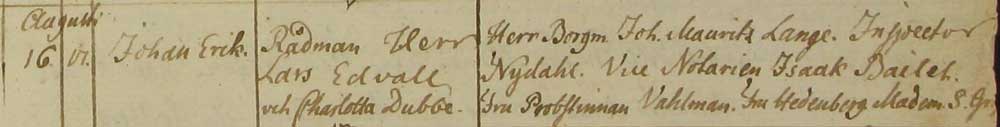 Augusti
16 Johan Erik. Rådman Herr Herr Borgm. Joh. Mauritz Lange. Inspector
Lars Edvall Nydahl. Vice Notarien Isaak Bailet.
och Charlotta Dubbe. Fru Probstinnan Vahlman. Fru Hedenberg Madem. S.